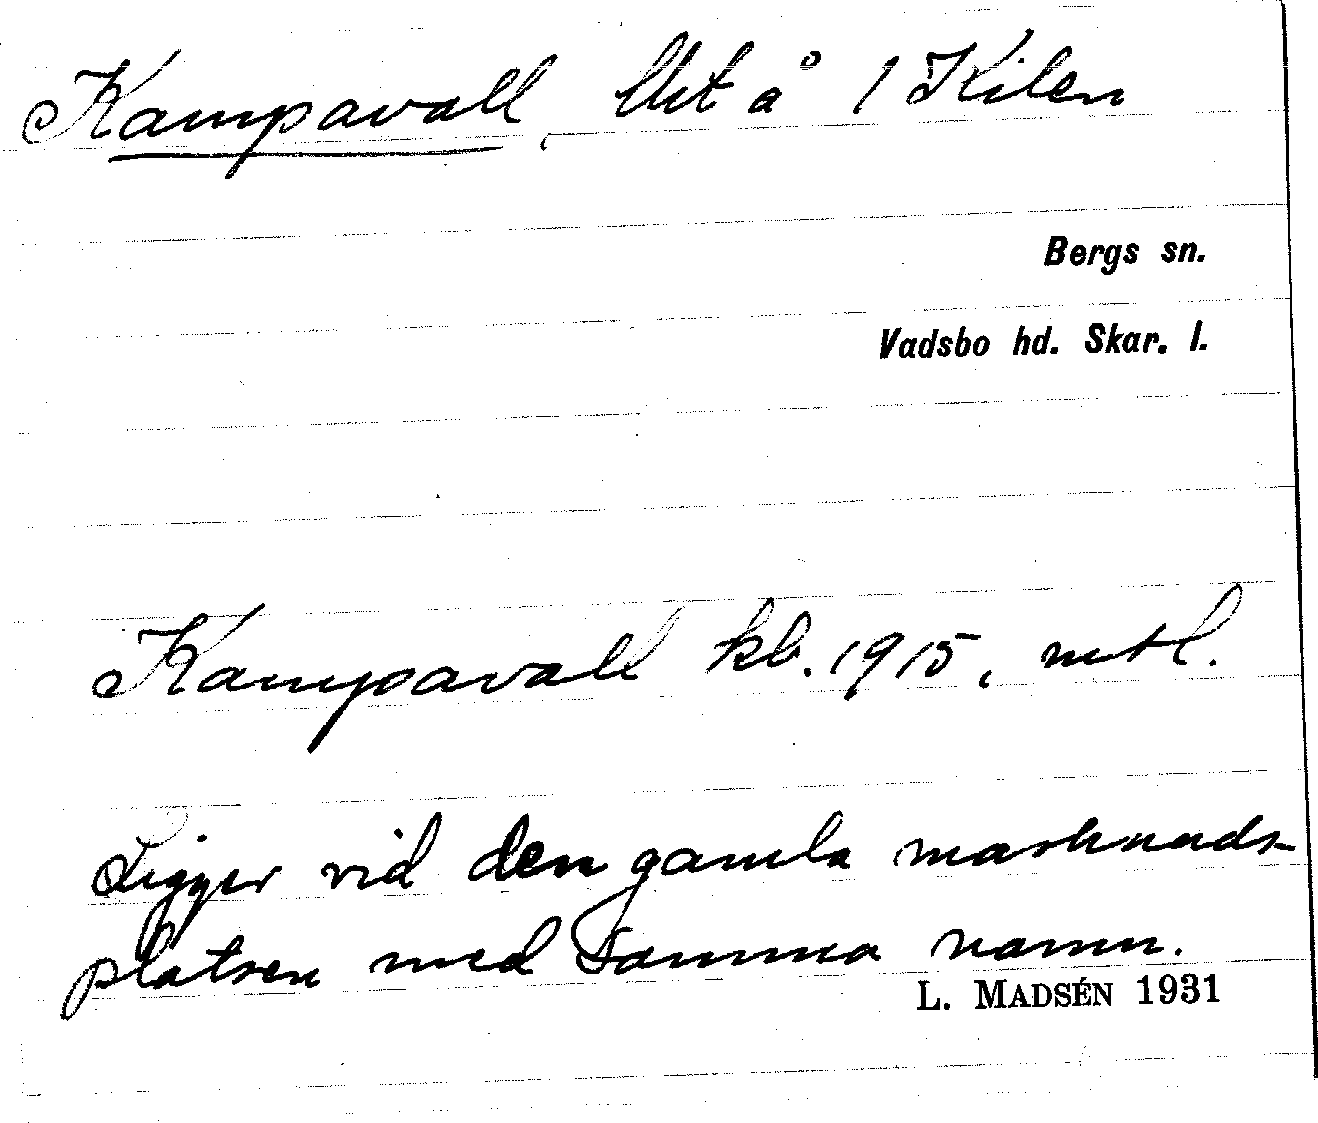 Kampavall, lht å 1 Kilen
Bergs sn.
Vadsbo hd. Skar. l.
Kampavall kb. 1915, mtl.
Ligger vid den gamla marknads-
platsen med samma namn.
L. MADSÉN 1931